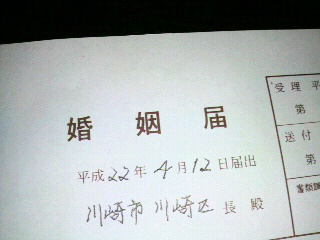 婚姻届
平成22年4月12日届出
川崎市川崎区長殿
受理 平
第
送付
第
書類調